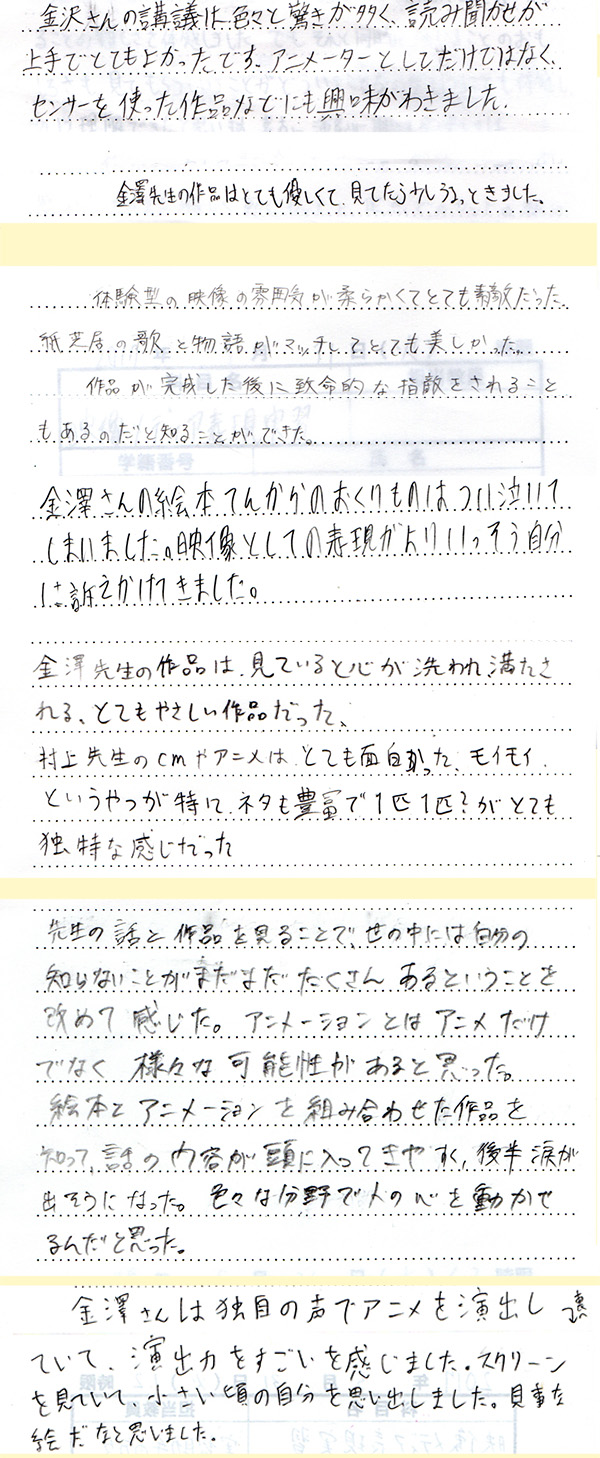 金沢さんの講義は、色々と驚きが多く、読み聞かせが
上手でとてもよかったです。アニメーターとしてだけではなく、
センサーを使った作品などにも興味がわきました。
金澤先生の作品はとても優しくて、見てたら少しうるっときました。
体験型の映像の雰囲気が柔らかくてとても素敵だった。
紙芝居の歌と物語がマッチしてとても美しかった。
作品が完成した後に致命的な指敵をされること
もあるのだと知ることができた。
金澤さんの絵本てんからのおくりものはつい泣いて
しまいました。映像としての表現がよりいっそう自分
に訴えかけてきました。
金澤先生の作品は、見ていると心が洗われ、満たさ
れる、とてもやさしい作品だった、
村上先生のcmやアニメは、とても面白かった、モイモイ
というやつが特に、ネタも豊富で1匹1匹?がとても
独特な感じだった
先生の話と作品を見ることで、世の中には自分の
知らないことがまだまだたくさんあるということを
改めて感じた。アニメーションとはアニメだけ
でなく様々な可能性があると思った。
絵本とアニメーションを組み合わせた作品を
知って、話の内容が頭に入ってきやすく、後半涙が
出そうになった。色々な分野で人の心を動かせ
るんだと思った。
金澤さんは独自の声でアニメを演出し
ていて、演出力をすごいを感じました。スクリーン
を見ていて、小さい頃の自分を思い出しました。見事な
絵だなと思いました。